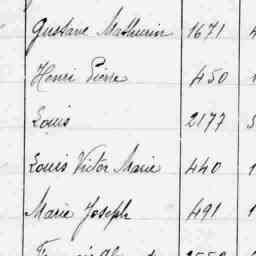 Gustave Mathurin 1671
Henri Pierre 450
Louis 2177
Louis Victor Marie 440
Marie Joseph 491